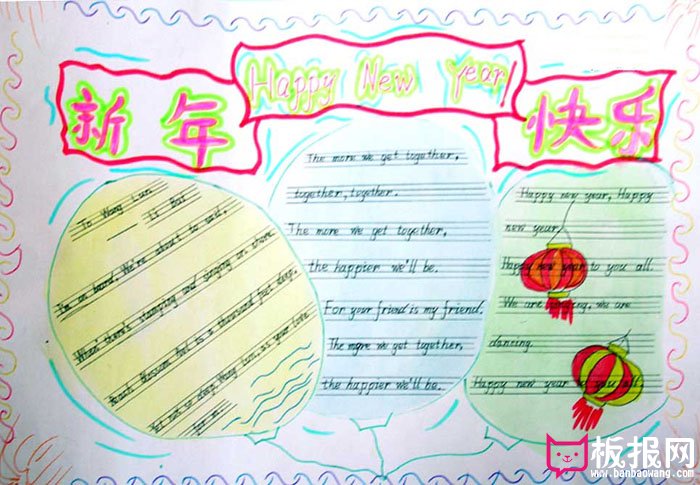 新年
Happy New Year
快乐
To Wang Lun
—— Li Bai
I'm on board, We're about to sail,
When there's stamping and singing on shore.
Peach Blossom Pool is a thousand feet deep,
Yet not so deep, Wang Lun, as your love
for me!
The more we get together,
together, together.
The more we get together,
the happier we'll be.
For your friend is my friend.
The more we get together,
the happier we'll be.
Happy new year, Happy
new year.
Happy new year to you all.
We are singing, we are
dancing.
Happy new year to you all.
板报网
www.banbaowang.com